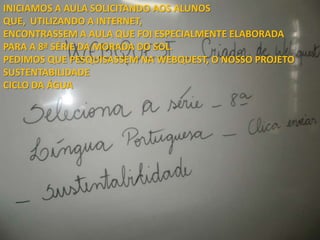 INICIAMOS A AULA SOLICITANDO AOS ALUNOS
QUE, UTILIZANDO A INTERNET,
ENCONTRASSEM A AULA QUE FOI ESPECIALMENTE ELABORADA
PARA A 8ª SÉRIE DA MORADA DO SOL.
PEDIMOS QUE PESQUISASSEM NA WEBQUEST, O NOSSO PROJETO
SUSTENTABILIDADE
CICLO DA ÁGUA
WEBQUEST Criador de Webquest
Seleciona a série - 8ª
Língua Portuguesa - Clica enviar
- Sustentabilidade